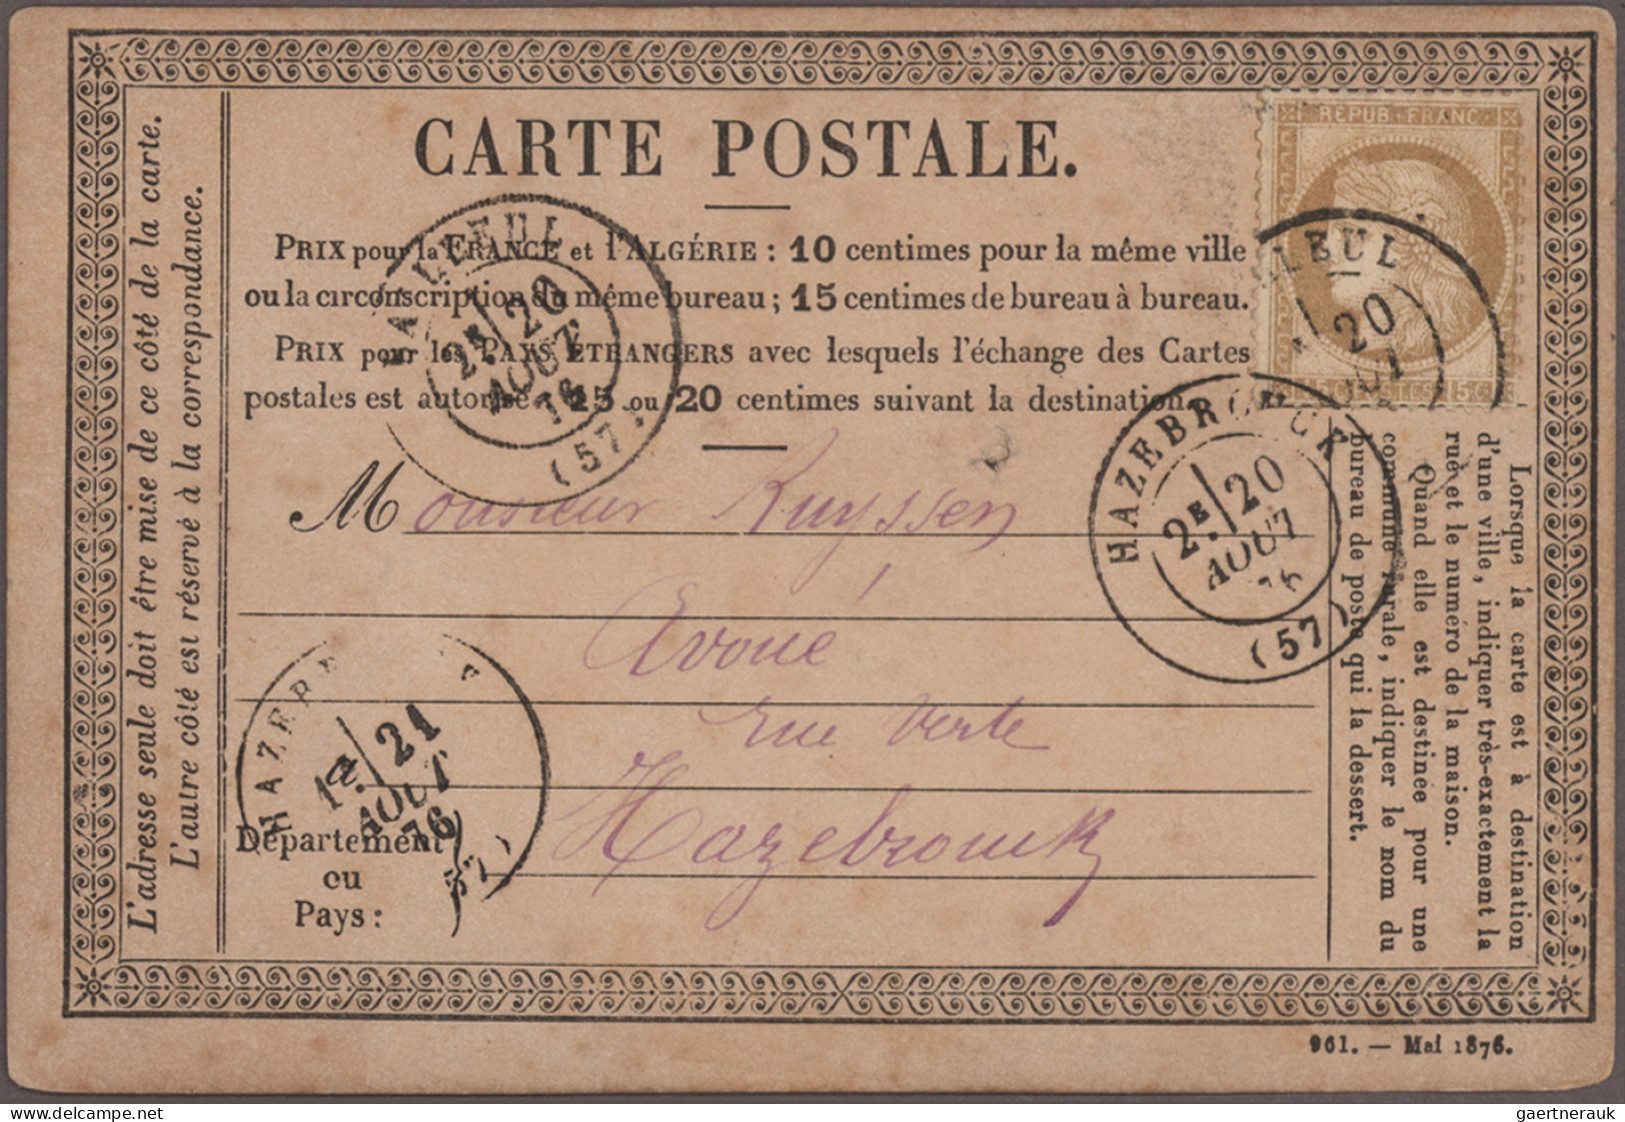 CARTE POSTALE.
PRIX pour la FRANCE et l'ALGÉRIE : 10 centimes pour la même ville
ou la circonscription du même bureau ; 15 centimes de bureau à bureau.
PRIX pour les PAYS ÉTRANGERS avec lesquels l'échange des Cartes
postales est autorisé 15 ou 20 centimes suivant la destination.
Monsieur Ruyssen
Avoué
rue Verte
Hazebrouck
Département
ou
Pays :
L'adresse seule doit être mise de ce côté de la carte.
L'autre côté est réservé à la correspondance.
Lorsque la carte est à destination
d'une ville, indiquer très-exactement la
rue et le numéro de la maison.
Quand elle est destinée pour une
commune rurale, indiquer le nom du
bureau de poste qui la dessert.
RÉPUB·FRANC.
15 C. POSTES 15 C.
LEUL
20
BAILLEUL
2E 20
AOUT
76
(57)
HAZEBROUCK
2E 20
AOUT
76
(57)
HAZEB
1e 21
AOUT
76
57)
961. — Mai 1876.
www.delcampe.net
gaertnerauk